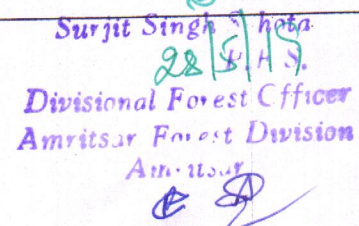 Surjit Singh
28/5/19 F. S.
Divisional Forest Officer
Amritsar Forest Division
Amritsar